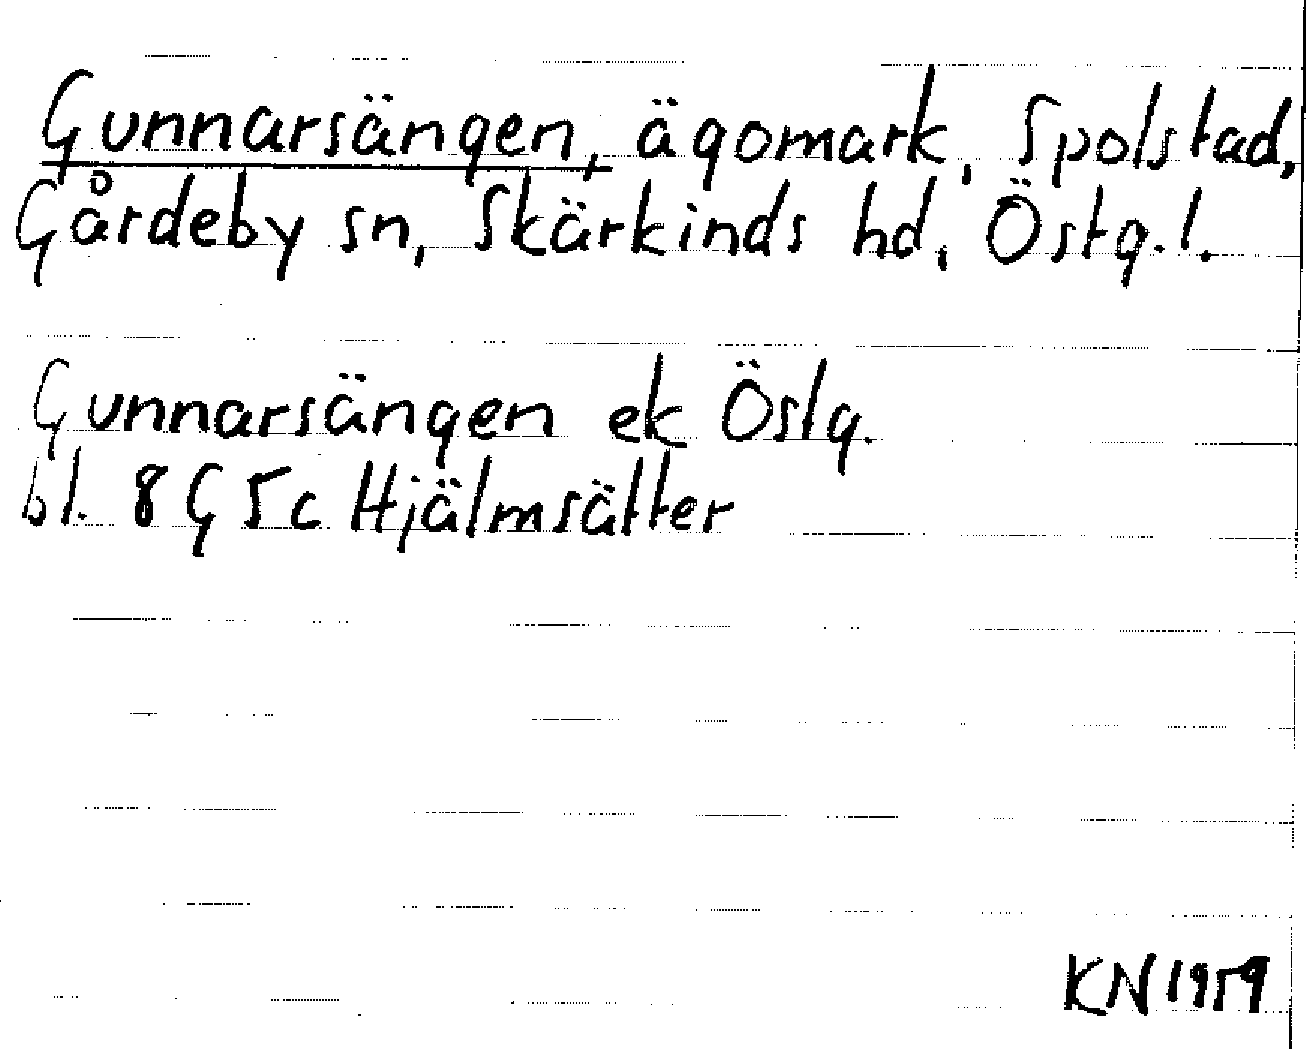 Gunnarsängen, ägomark, Spolstad,
Gårdeby sn, Skärkinds hd, Östg.l.
Gunnarsängen ek Östg.
bl. 8G5c Hjälmsätter
KN 1959